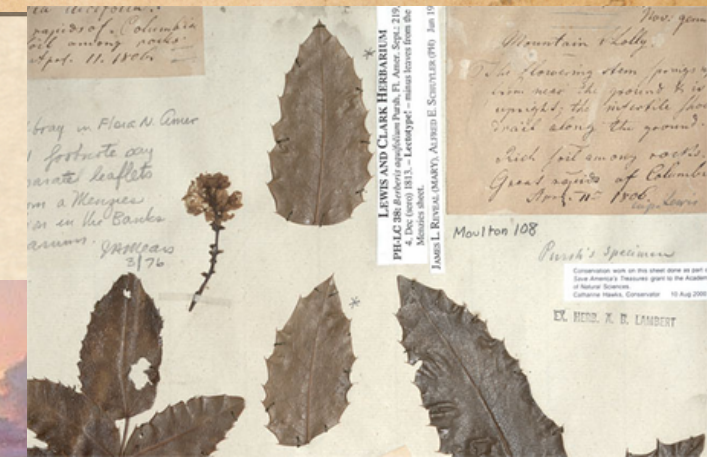 rapids of Columbia
soil among rocks
April. 11. 1806.
in Flora N. Amer
footnote
leaflets
a Menzies
in the Banks
3/76
LEWIS AND CLARK HERBARIUM
PH-LC 38: Berberis aquifolium Pursh, Fl. Amer. Sept.: 219,
4. Dec (sero) 1813. – Lectotype! – minus leaves from the
Menzies sheet.
JAMES L. REVEAL (MARY), ALFRED E. SCHUYLER (PH) Jun 19
Mountain Holly.
The flowering stem springs
from near the ground & is
upright; the infertile
trail along the ground.
Rich soil among rocks.
Great rapids of Columbia
April. 11th 1806.
Lewis
Moulton 108
Pursh's specimen
Conservation work on this sheet done as part
Save America's Treasures grant to the Academy
of Natural Sciences.
Catharine Hawks, Conservator 10 Aug 2000
EX. HERB. A. B. LAMBERT